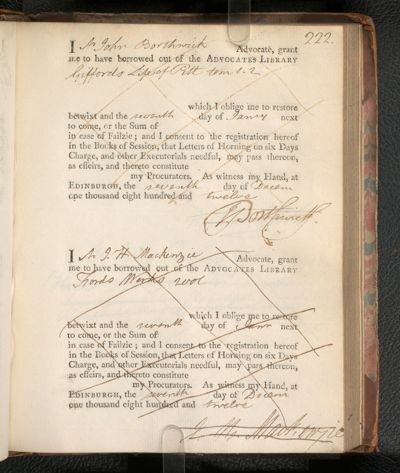 222.
I Mr John Borthwick Advocate, grant
me to have borrowed out of the ADVOCATES LIBRARY
Giffords Life of Pitt tom 1. 2
which I oblige me to restore
betwixt and the seventh day of Janry next
to come, or the Sum of
in case of Failzie; and I consent to the registration hereof
in the Books of Session, that Letters of Horning on six Days
Charge, and other Executorials needful, may pass thereon,
as effeirs, and thereto constitute
my Procurators. As witness my Hand, at
EDINBURGH, the seventh day of Decem
one thousand eight hundred and twelve
J Borthwick
I Mr J. H. Mackenzie Advocate, grant
me to have borrowed out of the ADVOCATES LIBRARY
Fords Works 2 vol
which I oblige me to restore
betwixt and the seventh day of Janr next
to come, or the Sum of
in case of Failzie; and I consent to the registration hereof
in the Books of Session, that Letters of Horning on six Days
Charge, and other Executorials needful, may pass thereon,
as effeirs, and thereto constitute
my Procurators. As witness my Hand, at
EDINBURGH, the seventh day of Decem
one thousand eight hundred and twelve
J. H. Mackenzie